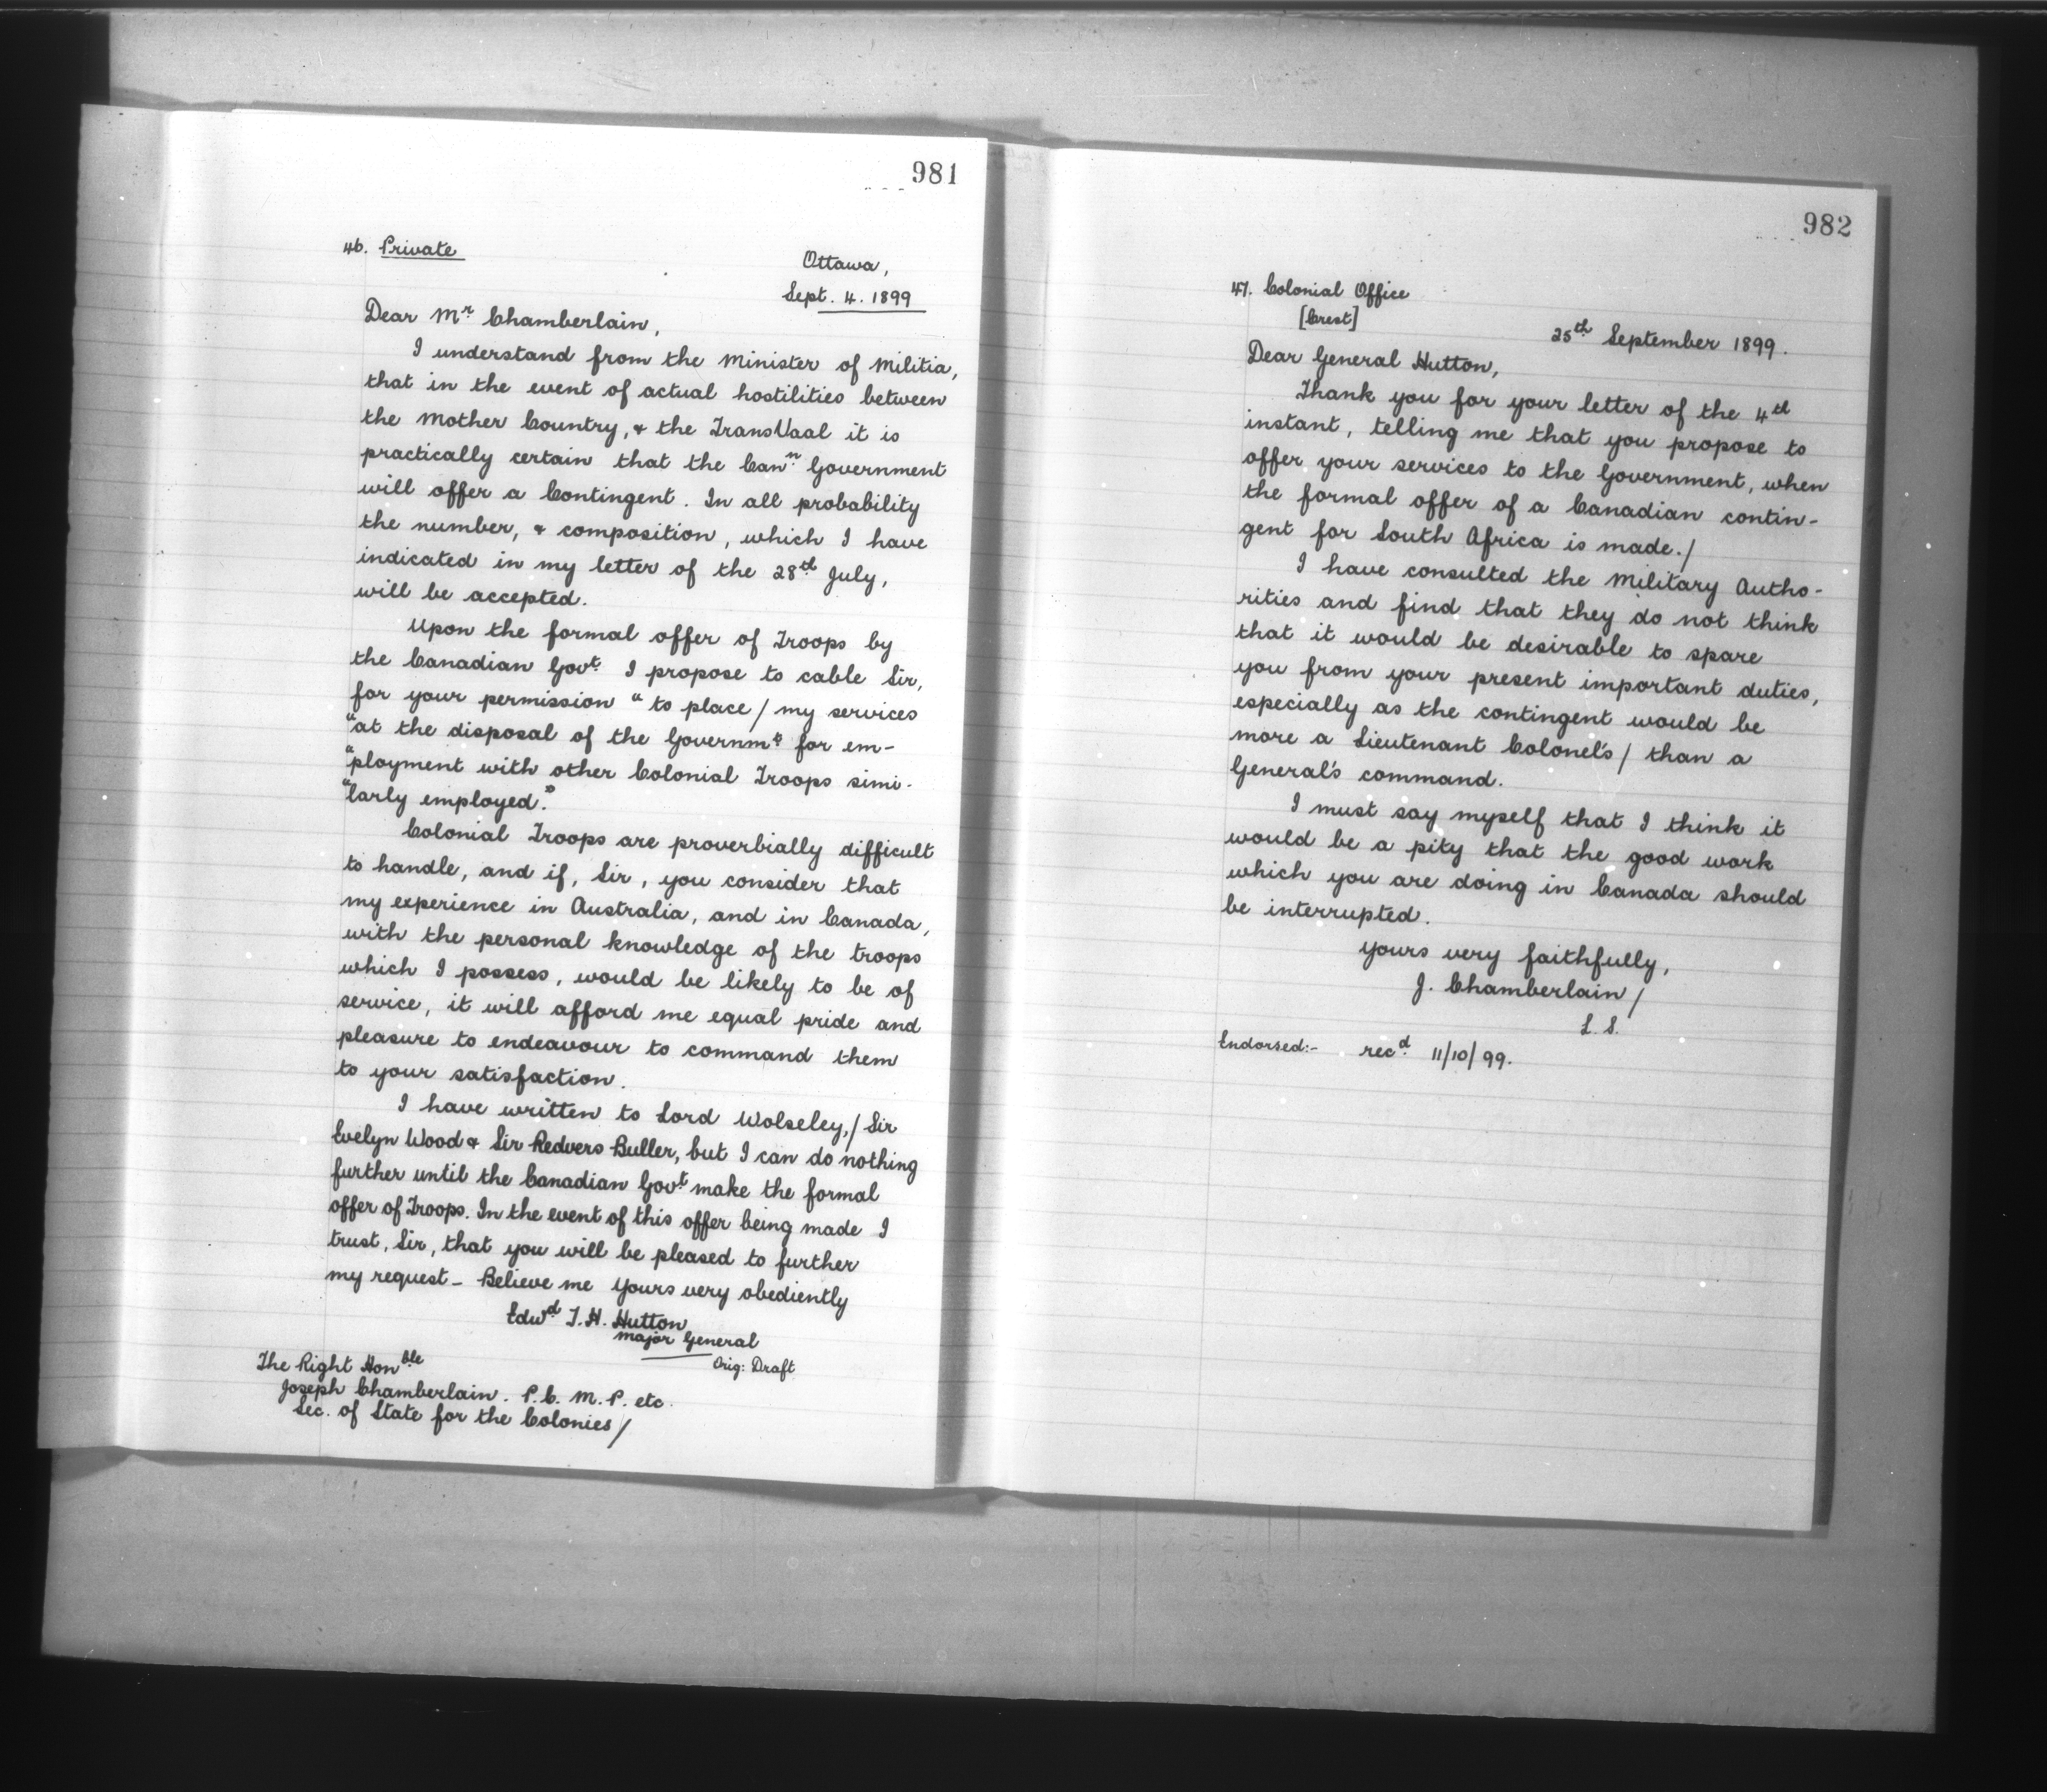 981
46. Private
Ottawa,
Sept. 4. 1899
Dear Mr. Chamberlain,
I understand from the Minister of Militia,
that in the event of actual hostilities between
the Mother Country, & the TransVaal it is
practically certain that the Cann. Government
will offer a Contingent. In all probability
the number, & composition, which I have
indicated in my letter of the 28th July,
will be accepted.
Upon the formal offer of Troops by
the Canadian Govt. I propose to cable Sir,
for your permission "to place / my services
"at the disposal of the Governmt for em-
"ployment with other Colonial Troops simi-
"larly employed."
Colonial Troops are proverbially difficult
to handle, and if, Sir, you consider that
my experience in Australia, and in Canada,
with the personal knowledge of the troops
which I possess, would be likely to be of
service, it will afford me equal pride and
pleasure to endeavour to command them
to your satisfaction.
I have written to Lord Wolseley, / Sir
Evelyn Wood & Sir Redvers Buller, but I can do nothing
further until the Canadian Govt. make the formal
offer of Troops. In the event of this offer being made I
trust, Sir, that you will be pleased to further
my request - Believe me Yours very obediently
Edwd T. H. Hutton
Major General
Orig: Draft
The Right Honble
Joseph Chamberlain. P.C. M.P. etc.
Sec. of State for the Colonies /
982
47. Colonial Office
[Crest]
25th September 1899.
Dear General Hutton,
Thank you for your letter of the 4th
instant, telling me that you propose to
offer your services to the Government, when
the formal offer of a Canadian contin-
gent for South Africa is made. /
I have consulted the Military Autho-
rities and find that they do not think
that it would be desirable to spare
you from your present important duties,
especially as the contingent would be
more a Lieutenant Colonel's / than a
General's command.
I must say myself that I think it
would be a pity that the good work
which you are doing in Canada should
be interrupted.
Yours very faithfully,
J. Chamberlain /
L. S.
Endorsed:- recd. 11/10/99.